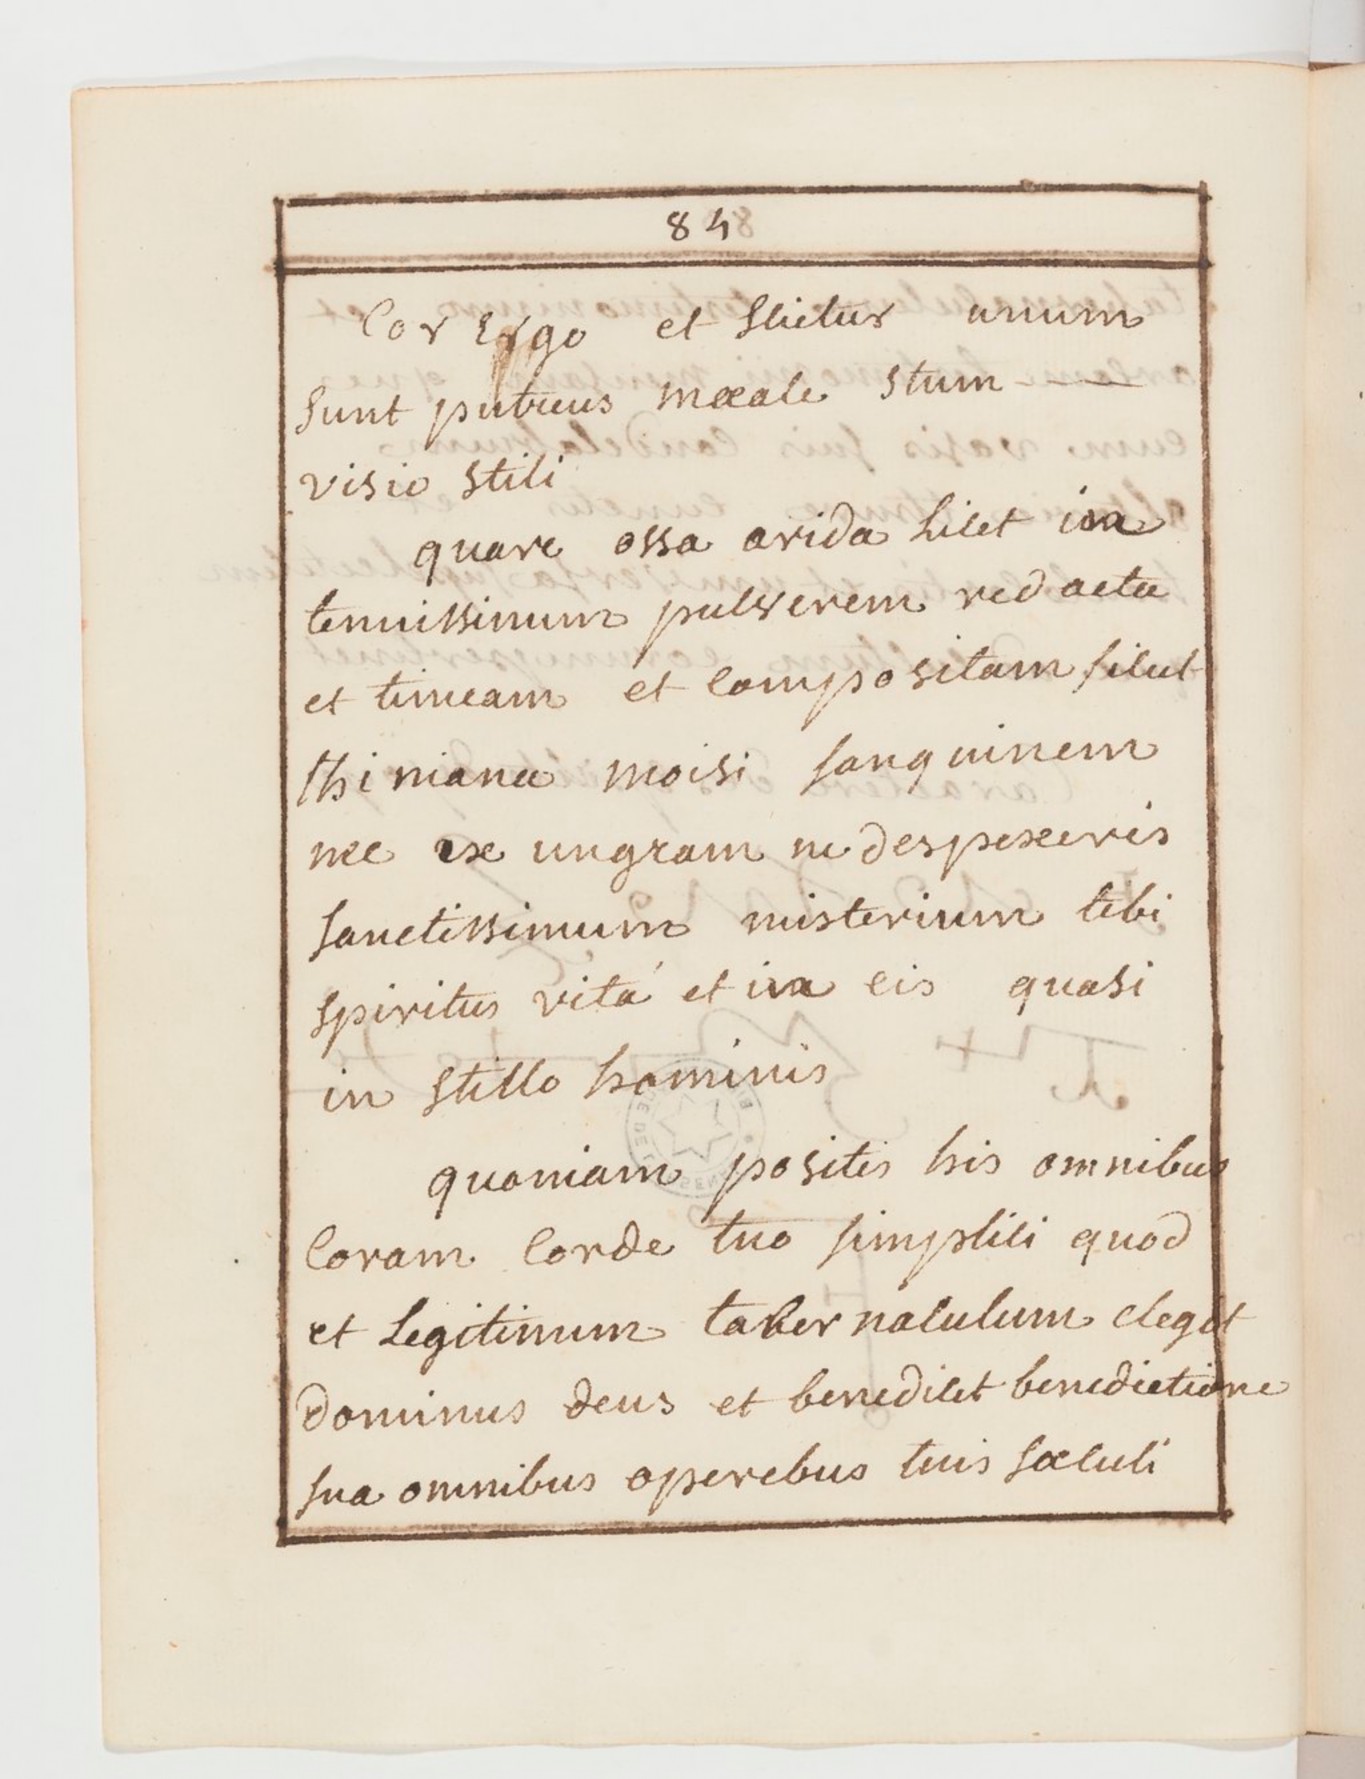 84
Cor Ergo et stietur unum
sunt putreus mæale stum
visio stili
quare ossa arida licet in
tenuissimum pulverem redacta
et timeam et compositam sicut
thi niana moisi sanguinem
nec ex ungram ne despexeris
sanctissimum misterium tibi
spiritus vitá et in eis quasi
in stillo hominis
quoniam positis his omnibus
Coram Corde tuo simplici quod
et Legitimum tabernaculum elegit
dominus deus et benedicet benedictione
sua omnibus operebus tuis sæculi